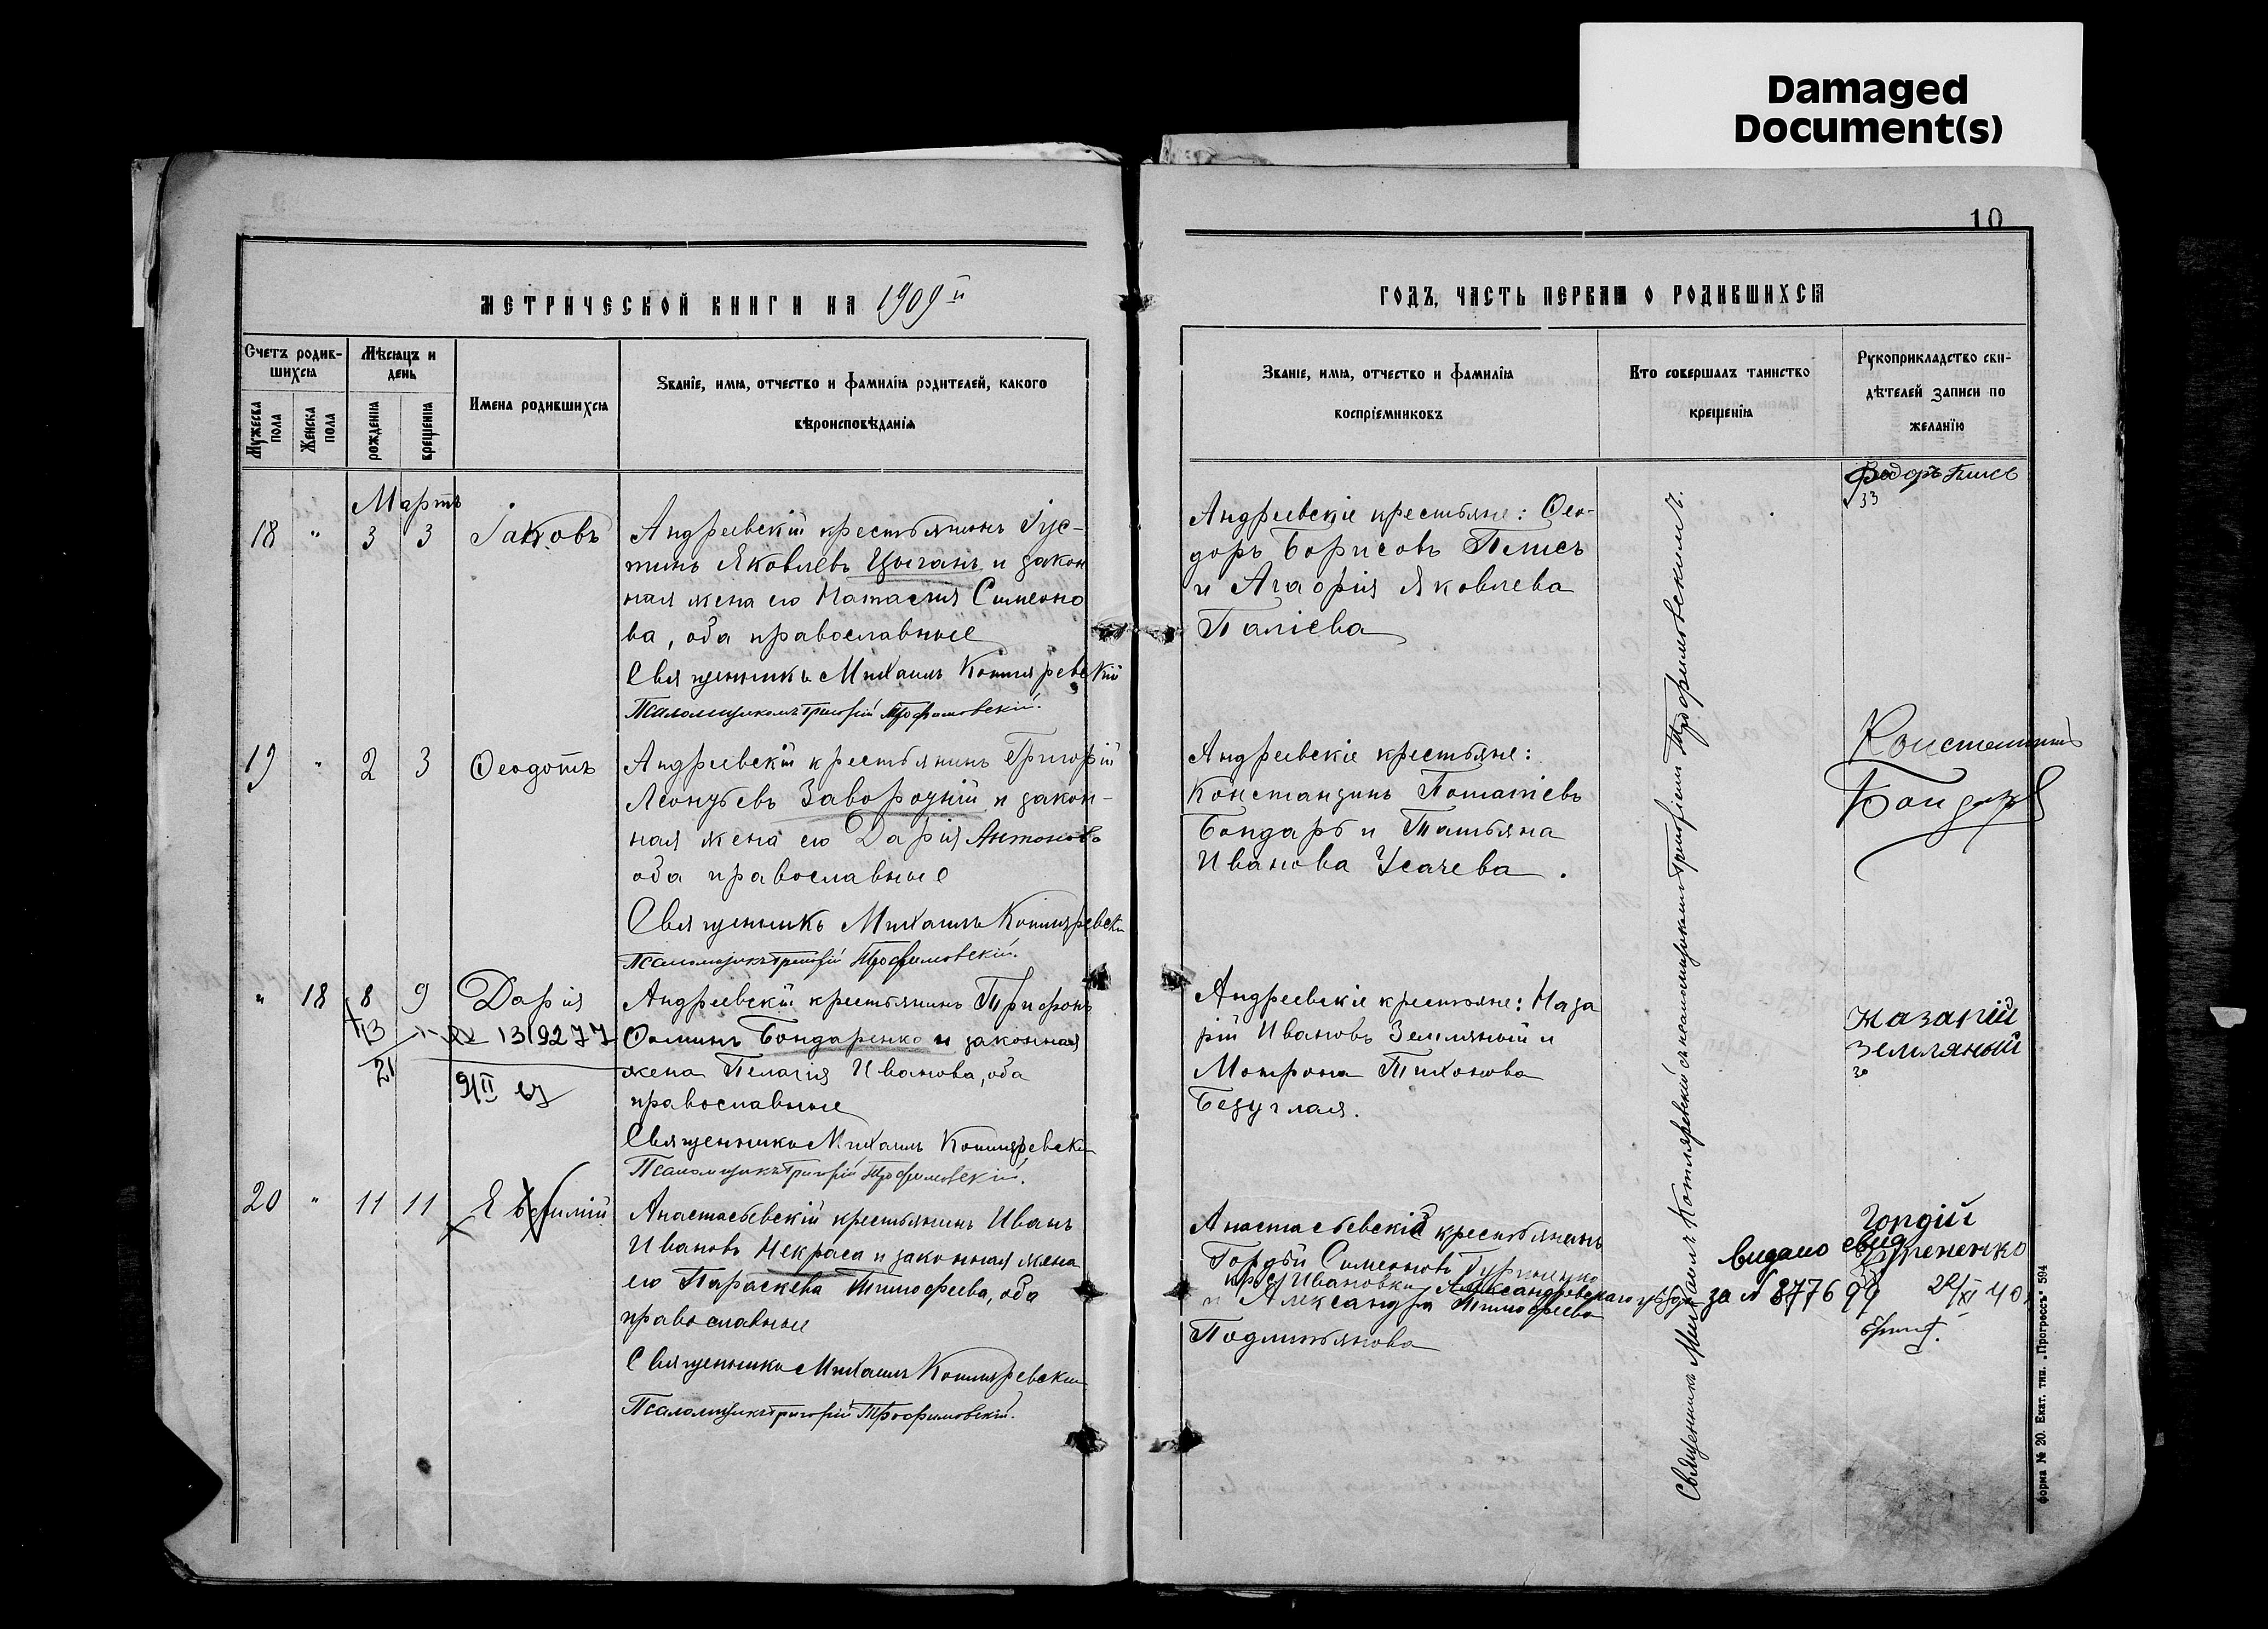 Damaged
Document(s)
10
МЕТРИЧЕСКОЙ КНИГИ НА 1909й
Счетъ родив-
шихся
Мѣсяцъ и
день
Мужеска
пола
Женска
пола
рожденія
крещенія
Имена родившихся
Званіе, имя, отчество и фамилія родителей, какого
вѣроисповѣданія
Мартъ
18 " 3 3 Іаковъ
Андреевскій крестьянинъ Іус-
тинъ Яковлевъ Цыганъ и закон
ная жена его Наталія Симеоно
ва, оба православные
Священникъ Михаилъ Котляревскій
Псаломщикъ Григорій Трофимовскій.
19 " 2 3 Ѳеодотъ
Андреевскій крестьянинъ Григорій
Леонтьевъ Завороdній и закон-
ная жена его Дарія Антонова
оба православные
Священникъ Михаилъ Котляревскій
Псаломщикъ Григорій Трофимовскій.
" 18 8 9 Дарія
Андреевскій крестьянинъ Трифонъ
Ѳоминъ Бондаренко и законная
жена Пелагія Иванова, оба
православные
13
1319277
21
Священникъ Михаилъ Котляревскій
Псаломщикъ Григорій Трофимовскій.
20 " 11 11 Евфимій
Анастасьевскій крестьянинъ Иванъ
Ивановъ Некраса и законная жена
его Параскева Тимофеева, оба
православные
Священникъ Михаилъ Котляревскій
Псаломщикъ Григорій Трофимовскій.
ГОДЪ, ЧАСТЬ ПЕРВАЯ О РОДИВШИХСЯ
Званіе, имя, отчество и фамилія
воспріемниковъ
Кто совершалъ таинство
крещенія
Рукоприкладство сви-
дѣтелей записи по
желанію
Андреевскіе крестьяне: Ѳео-
доръ Борисовъ Плисъ
и Агафія Яковлева
Паліева
Федоръ Плисъ
33
Андреевскіе крестьяне:
Константинъ Потапіевъ
Бондарь и Татьяна
Иванова Усачева.
Константинъ
Бондарь
Андреевскіе крестьяне: Наза
рій Ивановъ Земляный и
Матрона Тихонова
Безуглая.
Назарій
Земляный
Анастасьевскій крестьянинъ
Гордѣй Симеоновъ
Ивановки Александровскаго уѣзда
и Александра Тимофеева
Гордій
видано свид
за № 877699 22/XI 40
Священникъ Михаилъ Котляревскій съ псаломщикомъ Григоріемъ Трофимовскимъ.
форма № 20. Екат. тип. „Прогрессъ" 594